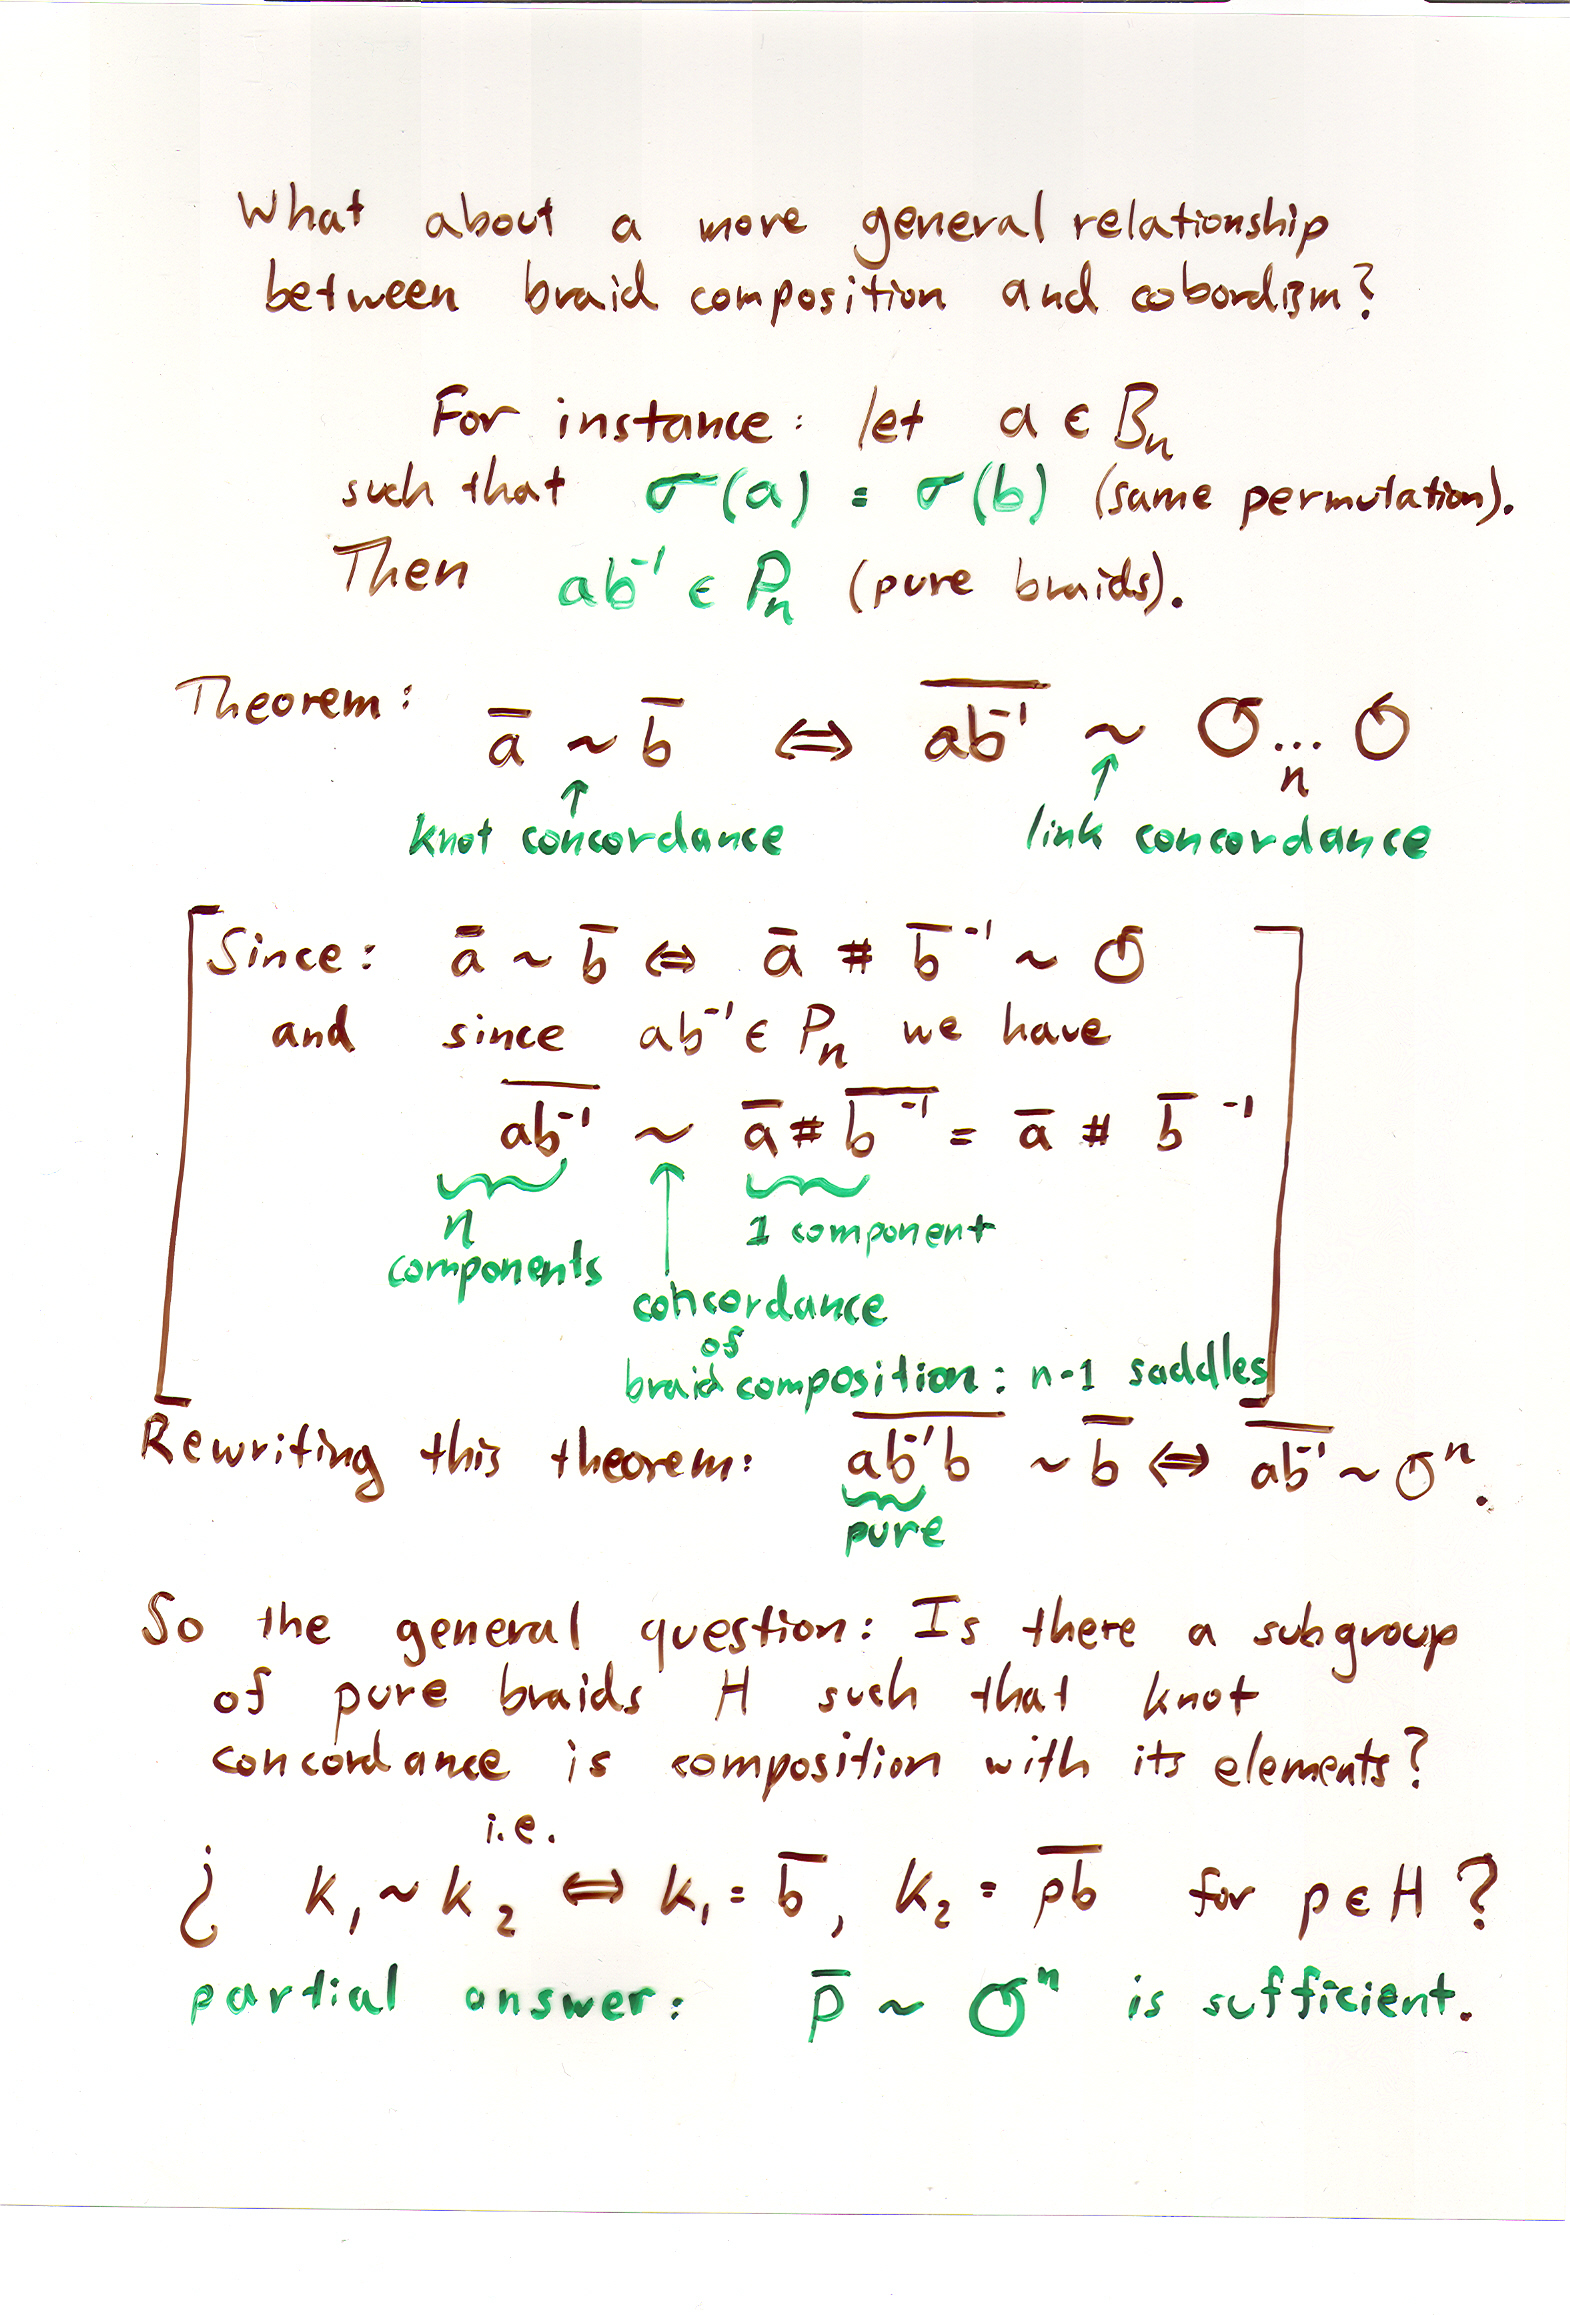 What about a more general relationship
between braid composition and cobordism?
For instance: let a ∈ Bₙ
such that σ(a) = σ(b) (same permutation).
Then ab⁻¹ ∈ Pₙ (pure braids).
Theorem: a̅ ~ b̅ ⇔ \overline{ab⁻¹} ~ O...O
n
↑ ↑
knot concordance link concordance
Since: a̅ ~ b̅ ⇔ a̅ # b̅⁻¹ ~ O
and since ab⁻¹ ∈ Pₙ we have
\overline{ab⁻¹} ~ a̅ # \overline{b⁻¹} = a̅ # b̅⁻¹
n 1 component
components
concordance
of
braid composition: n-1 saddles
Rewriting this theorem: \overline{ab⁻¹b} ~ b̅ ⇔ \overline{ab⁻¹} ~ Oⁿ.
pure
So the general question: Is there a subgroup
of pure braids H such that knot
concordance is composition with its elements?
i.e.
¿ K₁ ~ K₂ ⇔ K₁ = b̅, K₂ = \overline{pb} for p ∈ H ?
partial answer: p̅ ~ Oⁿ is sufficient.